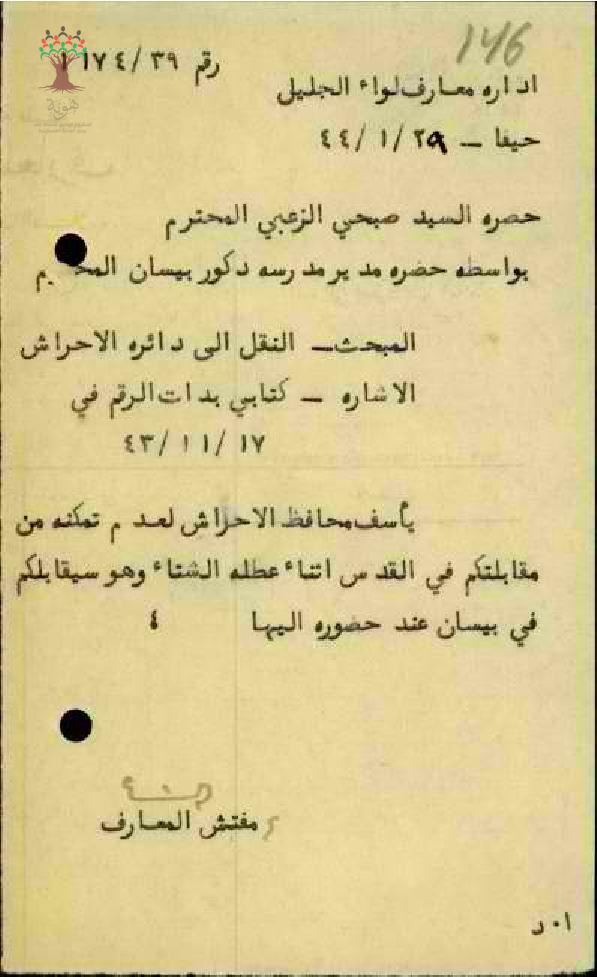 146
رقم ١١٧٤/٣٩
اداره معارف لواء الجليل
حيفا – ٢٩/١/٤٤
حضره السيد صبحي الزعبي المحترم
بواسطه حضره مدير مدرسه ذكور بيسان
المبحث – النقل الى دائره الاحراش
الاشاره – كتابي بذات الرقم في
٤٣/١١/١٧
يأسف محافظ الاحراش لعدم تمكنه من
مقابلتكم في القدس اثناء عطله الشتاء وهو سيقابلكم
في بيسان عند حضوره اليها ٤
مفتش المعارف
ا٠د
هوية